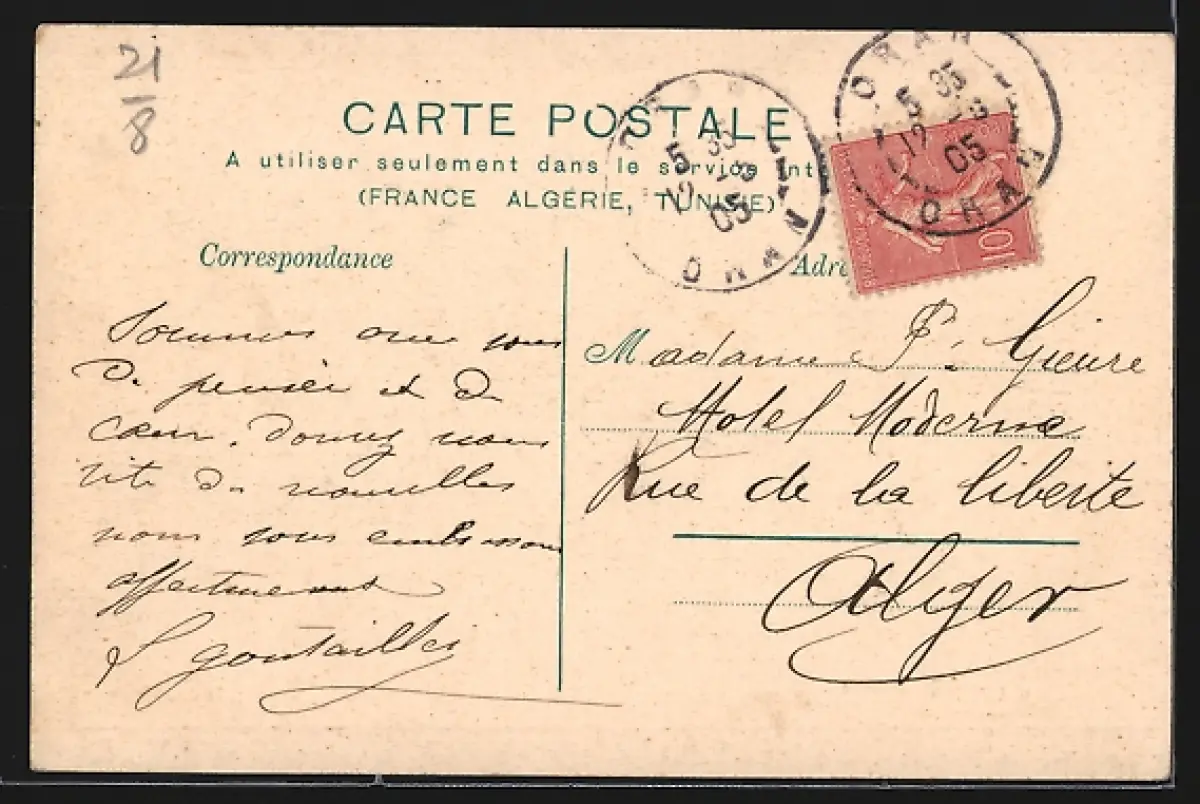 21
8
CARTE POSTALE
A utiliser seulement dans le service int
(FRANCE ALGÉRIE, TUNISIE)
ORAN
5 35
12 -8
05
ORAN
5 35
12 -8
05
ORAN
10
Correspondance
Adre
Sommes avec vous
De pensée et De
cœur. Donnez nous
vite De nouvelles
nous vous embrassons
affectueusement
Madame P. Gieure
Hotel Moderne
Rue de la liberté
Alger